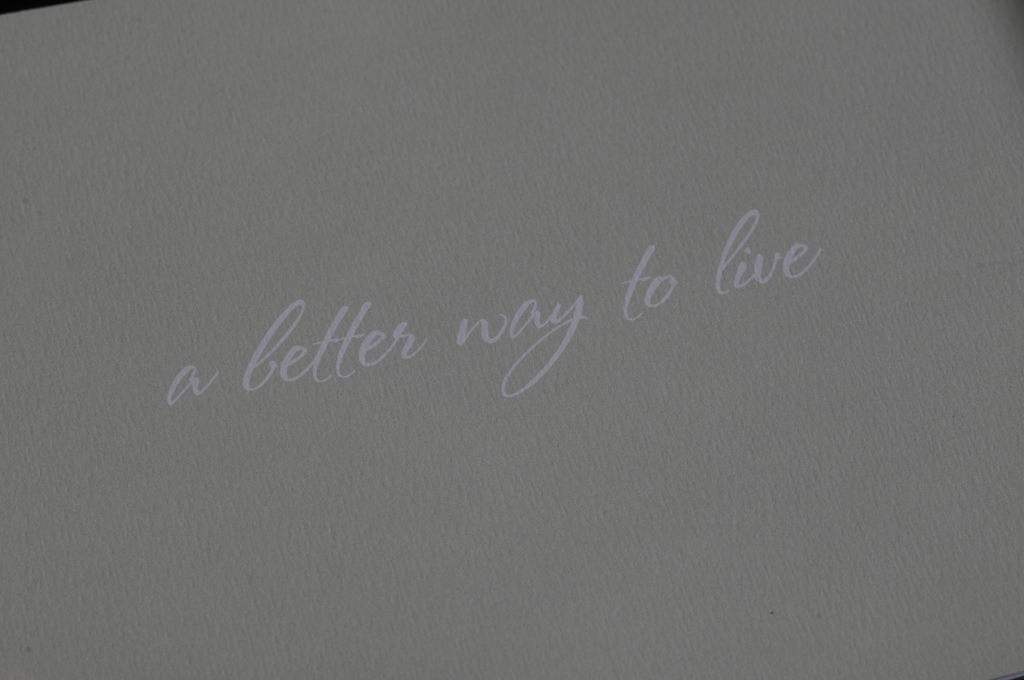 a better way to live